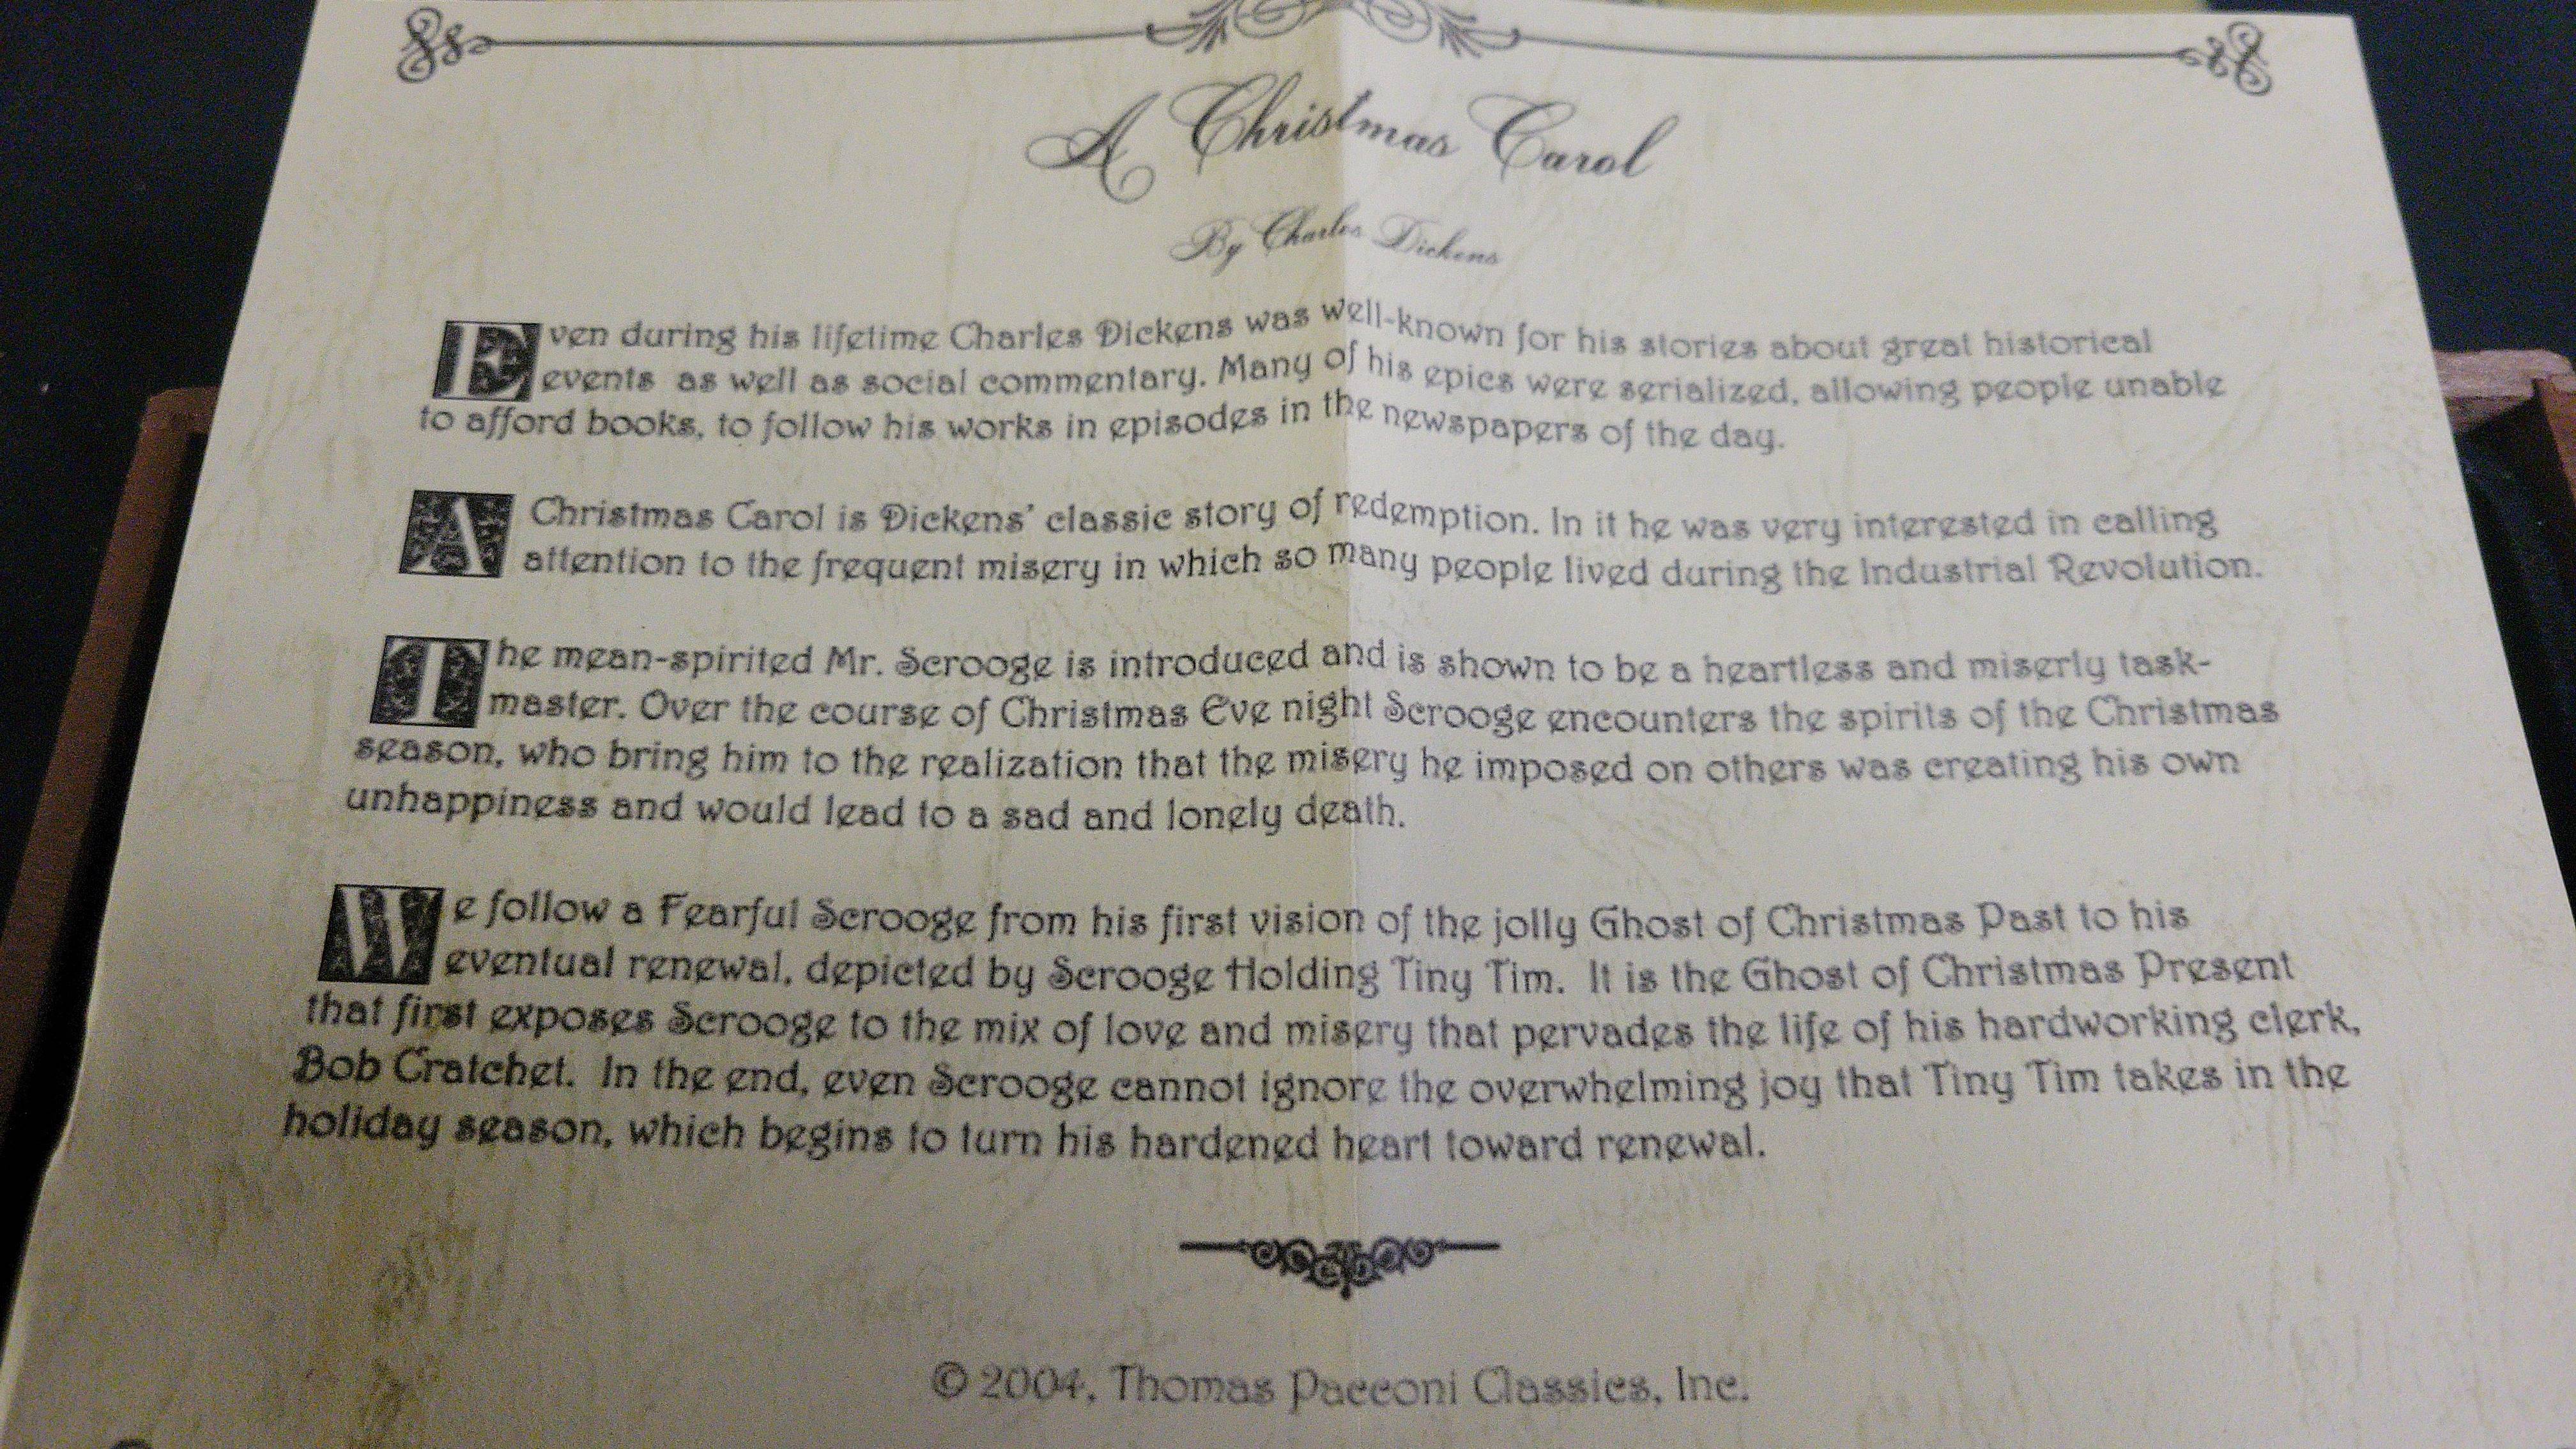 A Christmas Carol
By Charles Dickens
Even during his lifetime Charles Dickens was well-known for his stories about great historical
events as well as social commentary. Many of his epics were serialized, allowing people unable
to afford books, to follow his works in episodes in the newspapers of the day.
A Christmas Carol is Dickens' classic story of redemption. In it he was very interested in calling
attention to the frequent misery in which so many people lived during the Industrial Revolution.
The mean-spirited Mr. Scrooge is introduced and is shown to be a heartless and miserly task-
master. Over the course of Christmas Eve night Scrooge encounters the spirits of the Christmas
season, who bring him to the realization that the misery he imposed on others was creating his own
unhappiness and would lead to a sad and lonely death.
We follow a Fearful Scrooge from his first vision of the jolly Ghost of Christmas Past to his
eventual renewal, depicted by Scrooge Holding Tiny Tim. It is the Ghost of Christmas Present
that first exposes Scrooge to the mix of love and misery that pervades the life of his hardworking clerk,
Bob Cratchet. In the end, even Scrooge cannot ignore the overwhelming joy that Tiny Tim takes in the
holiday season, which begins to turn his hardened heart toward renewal.
© 2004, Thomas Pacconi Classics, Inc.